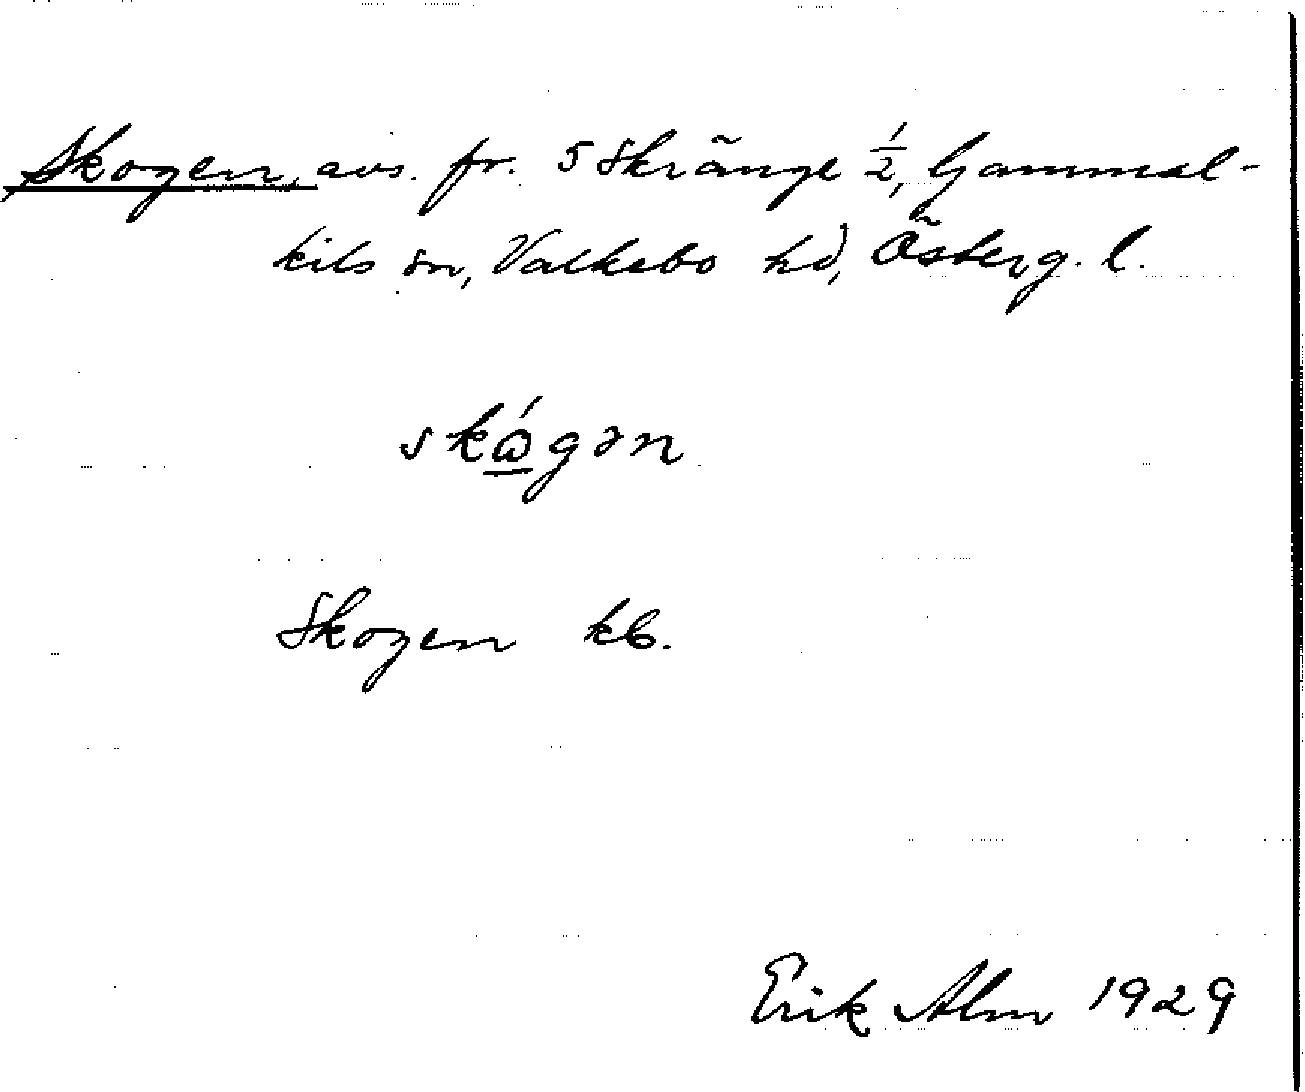 Skogen, avs. fr. 5 Skränge 1/2, Gammal-
kils sn, Valkebo hd, Österg. l.
skώ̲gən
Skogen kb.
Erik Alm 1929